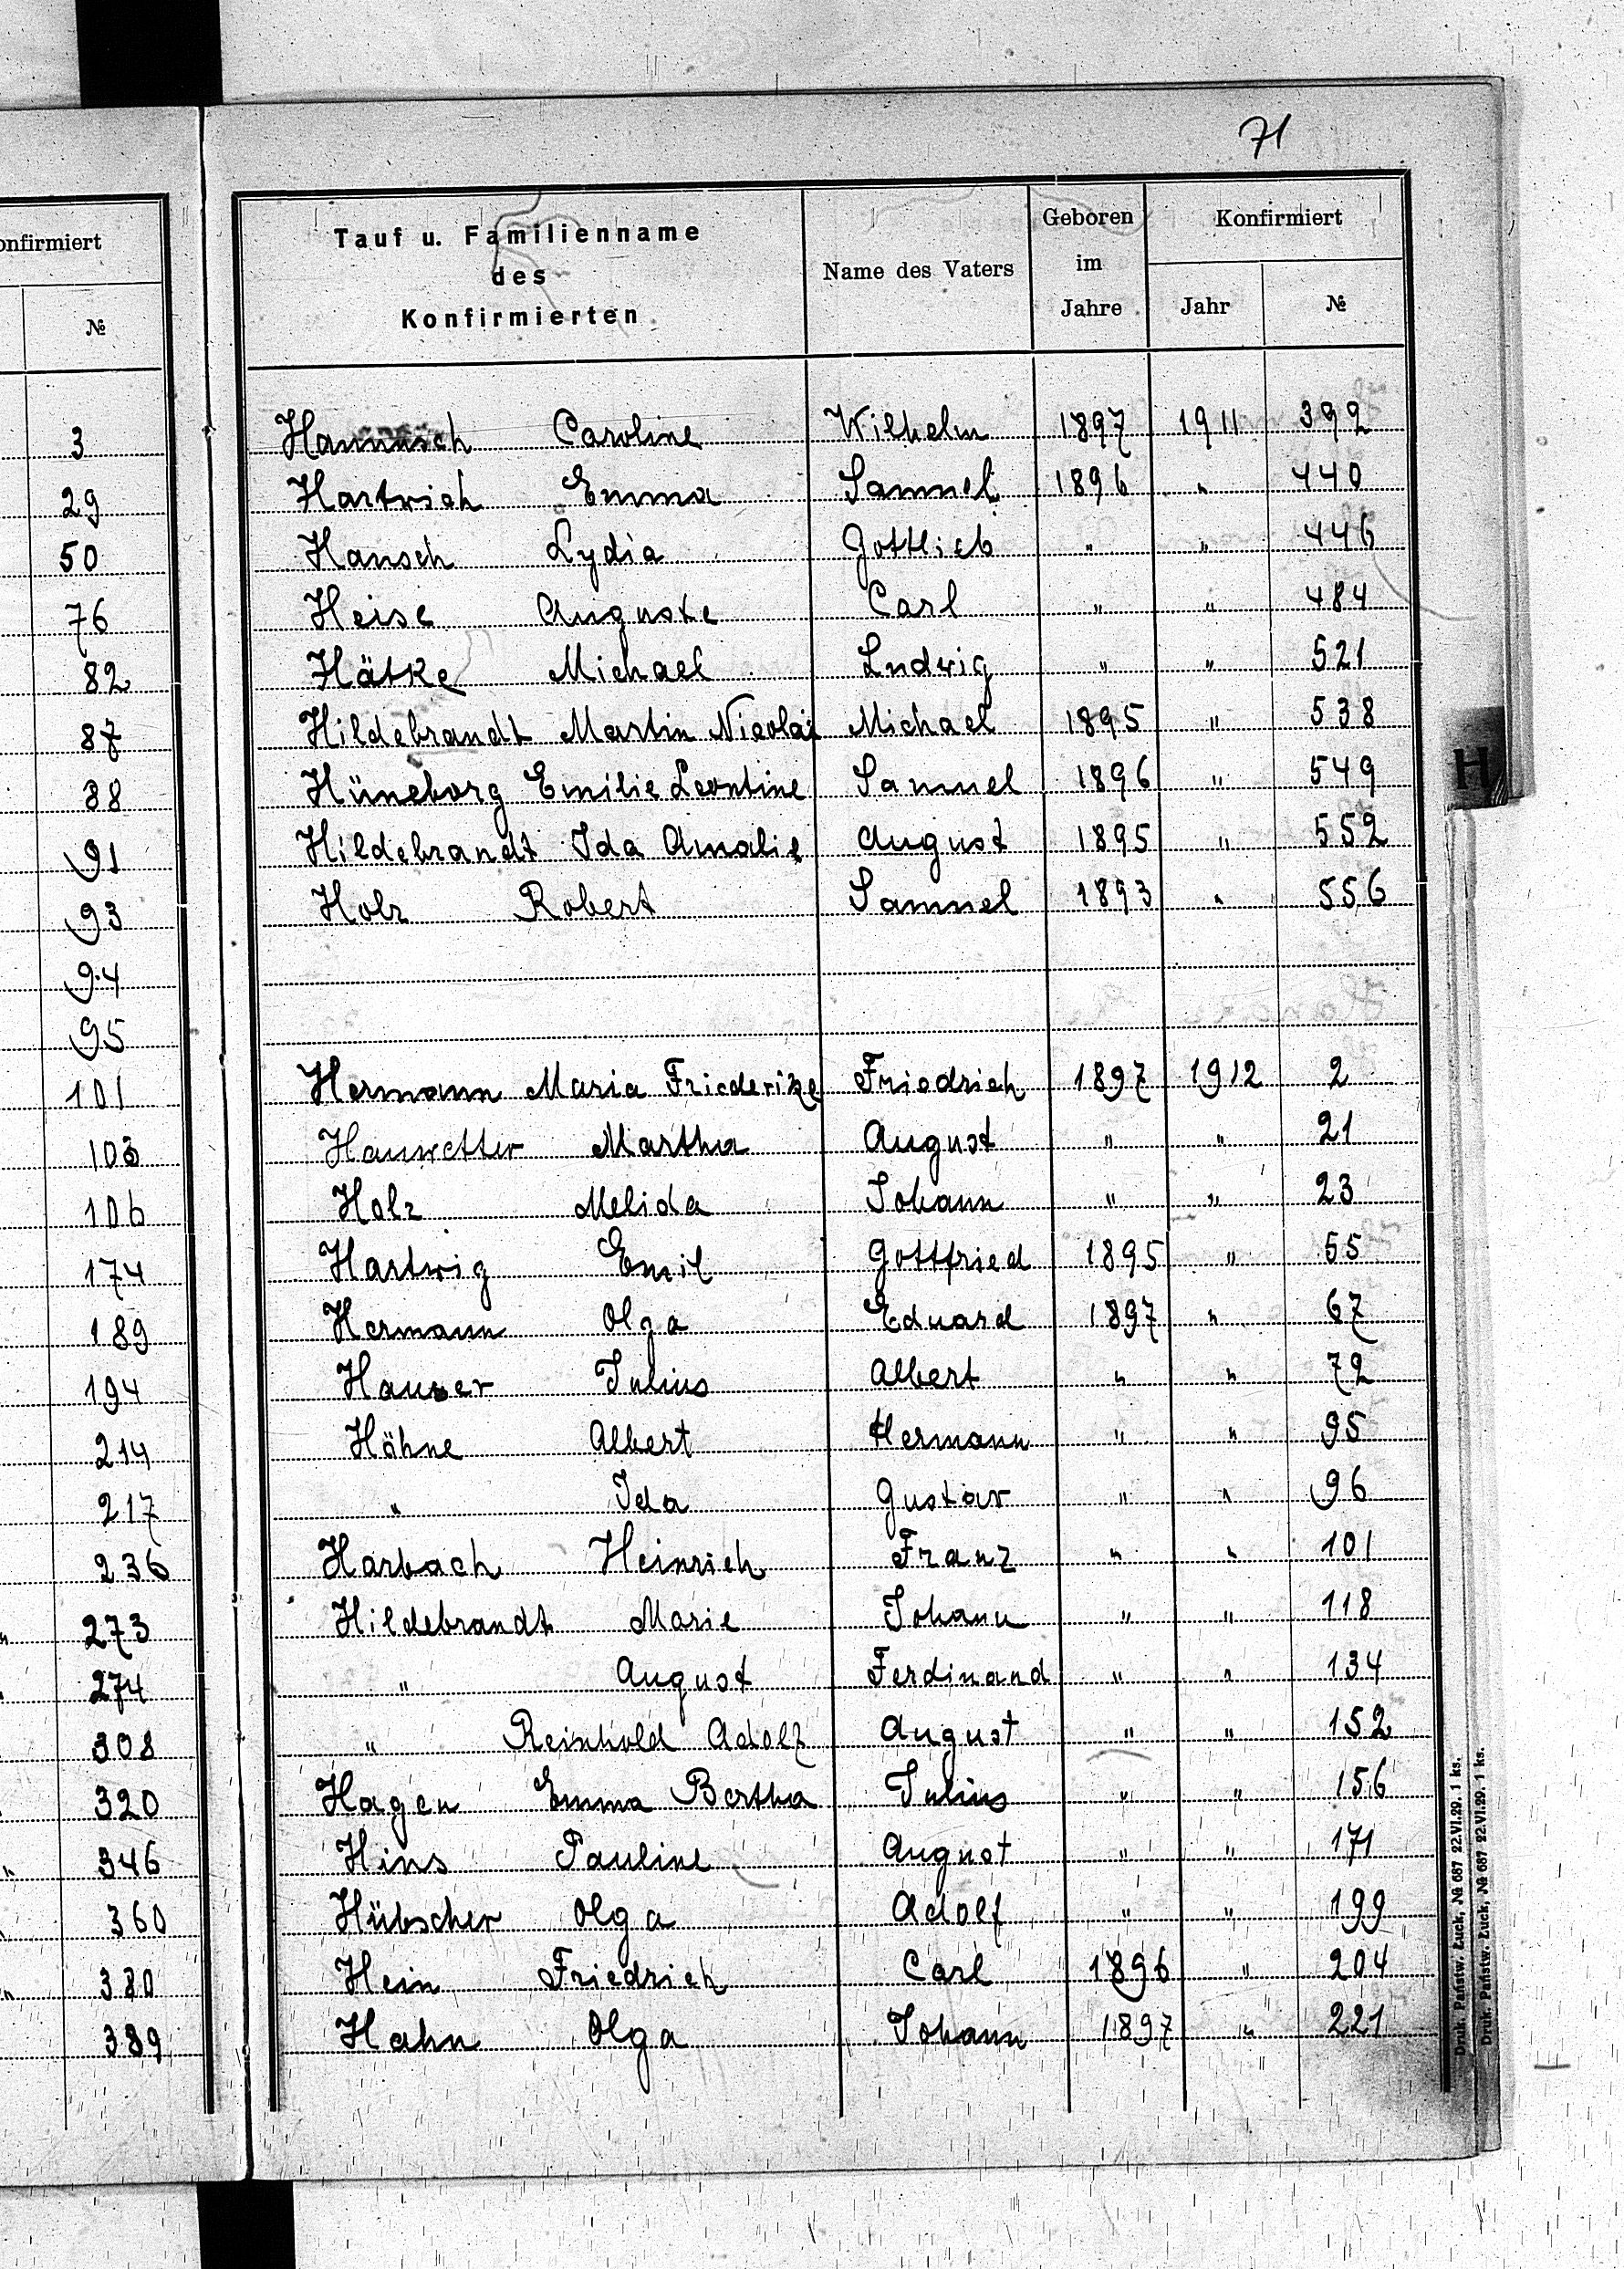 71
onfirmiert
№
3
29
50
76
82
87
88
91
93
94
95
101
103
106
174
189
194
214
217
236
273
274
308
320
346
360
380
389
Tauf u. Familienname des Konfirmierten | Name des Vaters | Geboren im Jahre | Konfirmiert Jahr | №
Hannusch Caroline Wilhelm 1897 1911 392
Hartwich Emma Samuel 1896 " 440
Hansch Lydia Gottlieb " " 446
Heise Auguste Carl " " 484
Hätke Michael Ludwig " " 521
Hildebrandt Martin Nicolai Michael 1895 " 538
Hüneborg Emilie Leontine Samuel 1896 " 549
Hildebrandt Ida Amalie August 1895 " 552
Holz Robert Samuel 1893 " 556
Hermann Maria Friederike Friedrich 1897 1912 2
Hauwetter Martha August " " 21
Holz Melida Johann " " 23
Hartwig Emil Gottfried 1895 " 55
Hermann Olga Eduard 1897 " 67
Hauser Julius Albert " " 72
Höhne Albert Hermann " " 95
" Ida Gustav " " 96
Harbach Heinrich Franz " " 101
Hildebrandt Marie Johann " " 118
" August Ferdinand " " 134
" Reinhold Adolf August " " 152
Hagen Emma Bertha Julius " " 156
Hins Pauline August " " 171
Hübscher Olga Adolf " " 199
Hein Friedrich Carl 1896 " 204
Hahn Olga Johann 1897 " 221
H
Druk. Państw. Łuck, № 687 22.VI.29. 1 ks.
Druk. Państw. Łuck, № 687 22.VI.29. 1 ks.